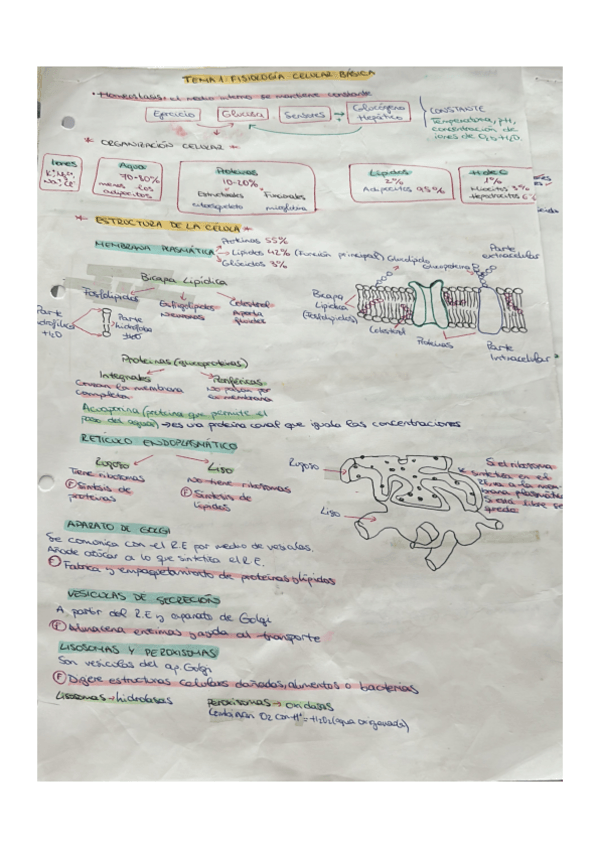 TEMA 1: FISIOLOGÍA CELULAR BÁSICA
• Homeostasis: el medio interno se mantiene constante
Ejercicio
Glucosa
Sensores
Glucógeno
Hepático
CONSTANTE
Temperatura, pH,
concentración de
iones de
* ORGANIZACIÓN CELULAR *
Iones
Agua
70-80%
menos los
adipocitos
Proteínas
10-20%
Estructurales
Funcionales
citoesqueleto
Lípidos
2%
Adipocitos 95%
H de C
1%
Miocitos 3%
Hepatocitos 6%
* ESTRUCTURA DE LA CÉLULA *
MEMBRANA PLASMÁTICA
Proteínas 55%
Lípidos 42% (Función principal)
Glúcidos 3%
Bicapa Lipídica
Fosfolípidos
Esfingolípidos
Neuronas
Colesterol
Aporta
fluidez
Parte
hidrófila
Parte
hidrófoba
Glucolípido
Glucoproteína
Parte
extracelular
Bicapa
Lipídica
(Fosfolípidos)
Colesterol
Proteínas
Parte
Intracelular
Proteínas (glucoproteínas)
Integrales
Cruzan la membrana
completa
Periféricas
No pasan por
la membrana
Acuaporina (proteína que permite el
paso del agua) → es una proteína canal que iguala las concentraciones
RETÍCULO ENDOPLASMÁTICO
Rugoso
Tiene ribosomas
(F) Síntesis de
proteínas
Liso
No tiene ribosomas
(F) Síntesis de
Lípidos
Rugoso
Liso
Si el ribosoma
sintetiza en el
R.E va a la mem-
brana plasmática
Si está libre se
queda
APARATO DE GOLGI
Se comunica con el R.E por medio de vesículas.
Añade azúcar a lo que sintetiza el R.E.
(F) Fabrica y empaquetamiento de proteínas y lípidos
VESÍCULAS DE SECRECIÓN
A partir del R.E y aparato de Golgi
(F) Almacena enzimas y ayuda al transporte
LISOSOMAS Y PEROXISOMAS
Son vesículas del ap. Golgi
(F) Digere estructuras celulares dañadas, alimentos o bacterias
Lisosomas → hidrolasas
Peroxisomas → oxidasas
O₂ con H⁺ = H₂O₂ (agua oxigenada)